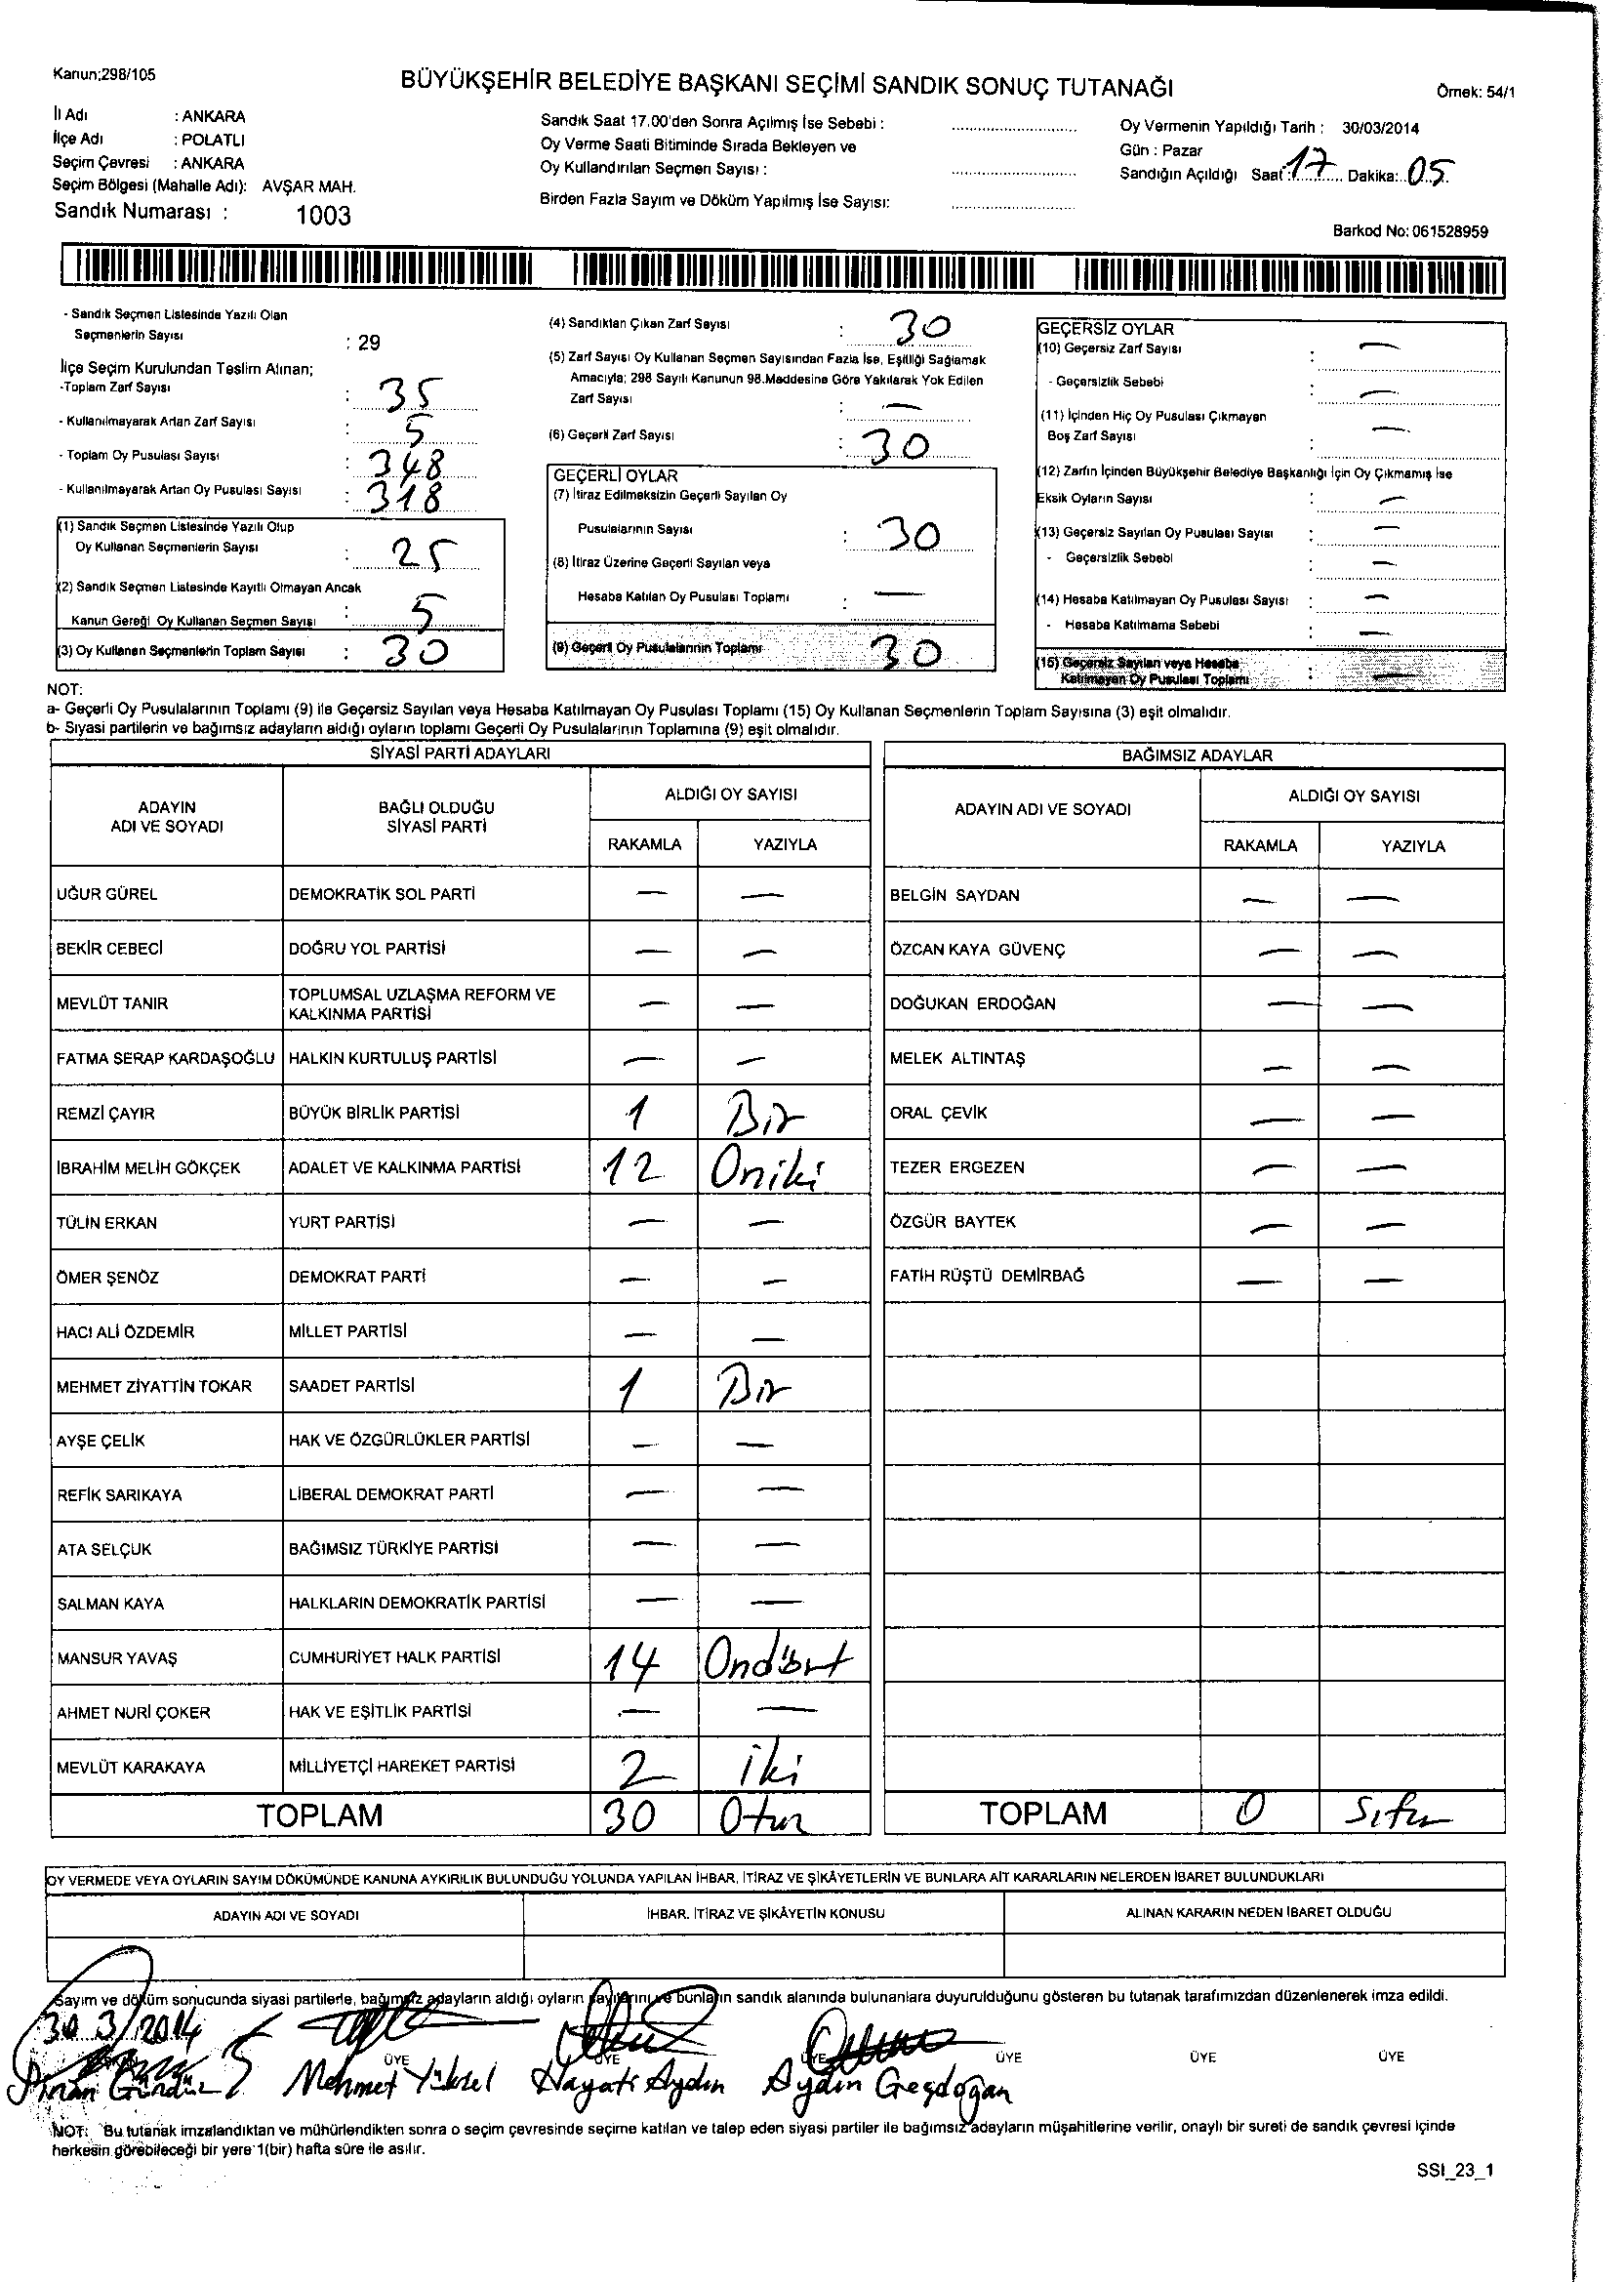 Kanun;298/105
BÜYÜKŞEHİR BELEDİYE BAŞKANI SEÇİMİ SANDIK SONUÇ TUTANAĞI
Örnek: 54/1
İl Adı : ANKARA
İlçe Adı : POLATLI
Seçim Çevresi : ANKARA
Seçim Bölgesi (Mahalle Adı): AVŞAR MAH.
Sandık Numarası : 1003
Sandık Saat 17.00'den Sonra Açılmış İse Sebebi :
Oy Verme Saati Bitiminde Sırada Bekleyen ve
Oy Kullandırılan Seçmen Sayısı :
Birden Fazla Sayım ve Döküm Yapılmış İse Sayısı:
Oy Vermenin Yapıldığı Tarih : 30/03/2014
Gün : Pazar
Sandığın Açıldığı Saat : 17 Dakika: 05
Barkod No: 061528959
- Sandık Seçmen Listesinde Yazılı Olan
Seçmenlerin Sayısı : 29
İlçe Seçim Kurulundan Teslim Alınan;
-Toplam Zarf Sayısı : 35
- Kullanılmayarak Artan Zarf Sayısı : 5
- Toplam Oy Pusulası Sayısı : 348
- Kullanılmayarak Artan Oy Pusulası Sayısı : 318
(1) Sandık Seçmen Listesinde Yazılı Olup
Oy Kullanan Seçmenlerin Sayısı : 25
(2) Sandık Seçmen Listesinde Kayıtlı Olmayan Ancak
Kanun Gereği Oy Kullanan Seçmen Sayısı : 5
(3) Oy Kullanan Seçmenlerin Toplam Sayısı : 30
(4) Sandıktan Çıkan Zarf Sayısı : 30
(5) Zarf Sayısı Oy Kullanan Seçmen Sayısından Fazla İse, Eşitliği Sağlamak
Amacıyla; 298 Sayılı Kanunun 98.Maddesine Göre Yakılarak Yok Edilen
Zarf Sayısı : —
(6) Geçerli Zarf Sayısı : 30
GEÇERLİ OYLAR
(7) İtiraz Edilmeksizin Geçerli Sayılan Oy
Pusulalarının Sayısı : 30
(8) İtiraz Üzerine Geçerli Sayılan veya
Hesaba Katılan Oy Pusulası Toplamı : —
(9) Geçerli Oy Pusulalarının Toplamı 30
GEÇERSİZ OYLAR
(10) Geçersiz Zarf Sayısı : —
- Geçersizlik Sebebi : —
(11) İçinden Hiç Oy Pusulası Çıkmayan
Boş Zarf Sayısı : —
(12) Zarfın İçinden Büyükşehir Belediye Başkanlığı İçin Oy Çıkmamış İse
Eksik Oyların Sayısı —
(13) Geçersiz Sayılan Oy Pusulası Sayısı : —
- Geçersizlik Sebebi —
(14) Hesaba Katılmayan Oy Pusulası Sayısı : —
- Hesaba Katılmama Sebebi : —
(15) Geçersiz Sayılan veya Hesaba
Katılmayan Oy Pusulası Toplamı : —
NOT:
a- Geçerli Oy Pusulalarının Toplamı (9) ile Geçersiz Sayılan veya Hesaba Katılmayan Oy Pusulası Toplamı (15) Oy Kullanan Seçmenlerin Toplam Sayısına (3) eşit olmalıdır.
b- Siyasi partilerin ve bağımsız adayların aldığı oyların toplamı Geçerli Oy Pusulalarının Toplamına (9) eşit olmalıdır.
SİYASİ PARTİ ADAYLARI
ADAYIN ADI VE SOYADI | BAĞLI OLDUĞU SİYASİ PARTİ | ALDIĞI OY SAYISI
RAKAMLA | YAZIYLA
UĞUR GÜREL | DEMOKRATİK SOL PARTİ | — | —
BEKİR CEBECİ | DOĞRU YOL PARTİSİ | — | —
MEVLÜT TANIR | TOPLUMSAL UZLAŞMA REFORM VE KALKINMA PARTİSİ | — | —
FATMA SERAP KARDAŞOĞLU | HALKIN KURTULUŞ PARTİSİ | — | —
REMZİ ÇAYIR | BÜYÜK BİRLİK PARTİSİ | 1 | Bir
İBRAHİM MELİH GÖKÇEK | ADALET VE KALKINMA PARTİSİ | 12 | Oniki
TÜLİN ERKAN | YURT PARTİSİ | — | —
ÖMER ŞENÖZ | DEMOKRAT PARTİ | — | —
HACI ALİ ÖZDEMİR | MİLLET PARTİSİ | — | —
MEHMET ZİYATTİN TOKAR | SAADET PARTİSİ | 1 | Bir
AYŞE ÇELİK | HAK VE ÖZGÜRLÜKLER PARTİSİ | — | —
REFİK SARIKAYA | LİBERAL DEMOKRAT PARTİ | — | —
ATA SELÇUK | BAĞIMSIZ TÜRKİYE PARTİSİ | — | —
SALMAN KAYA | HALKLARIN DEMOKRATİK PARTİSİ | — | —
MANSUR YAVAŞ | CUMHURİYET HALK PARTİSİ | 14 | Ondört
AHMET NURİ ÇOKER | HAK VE EŞİTLİK PARTİSİ | — | —
MEVLÜT KARAKAYA | MİLLİYETÇİ HAREKET PARTİSİ | 2 | iki
TOPLAM | 30 | Otuz
BAĞIMSIZ ADAYLAR
ADAYIN ADI VE SOYADI | ALDIĞI OY SAYISI
RAKAMLA | YAZIYLA
BELGİN SAYDAN | — | —
ÖZCAN KAYA GÜVENÇ | — | —
DOĞUKAN ERDOĞAN | — | —
MELEK ALTINTAŞ | — | —
ORAL ÇEVİK | — | —
TEZER ERGEZEN | — | —
ÖZGÜR BAYTEK | — | —
FATİH RÜŞTÜ DEMİRBAĞ | — | —
TOPLAM | 0 | Sıfır
OY VERMEDE VEYA OYLARIN SAYIM DÖKÜMÜNDE KANUNA AYKIRILIK BULUNDUĞU YOLUNDA YAPILAN İHBAR, İTİRAZ VE ŞİKÂYETLERİN VE BUNLARA AİT KARARLARIN NELERDEN İBARET BULUNDUKLARI
ADAYIN ADI VE SOYADI | İHBAR, İTİRAZ VE ŞİKÂYETİN KONUSU | ALINAN KARARIN NEDEN İBARET OLDUĞU
Sayım ve döküm sonucunda siyasi partilerle, bağımsız adayların aldığı oyların sayılarını ve bunların sandık alanında bulunanlara duyurulduğunu gösteren bu tutanak tarafımızdan düzenlenerek imza edildi.
30 3/2014
ÜYE ÜYE ÜYE ÜYE ÜYE ÜYE
Gündüz Mehmet Yüksel Hayati Aydın Aydın Geşdoğan
NOT: Bu tutanak imzalandıktan ve mühürlendikten sonra o seçim çevresinde seçime katılan ve talep eden siyasi partiler ile bağımsız adayların müşahitlerine verilir, onaylı bir sureti de sandık çevresi içinde
herkesin görebileceği bir yere 1(bir) hafta süre ile asılır.
SSI_23_1